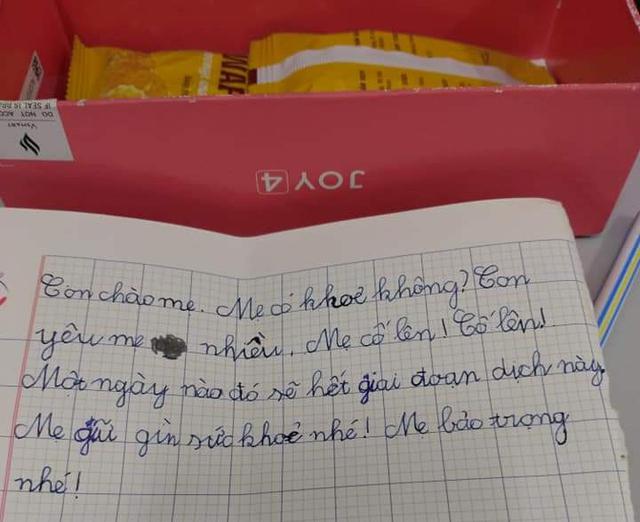 WAF
DO NOT ACC
IF SEAL IS BR
VSMART
JOY 4
Con chào mẹ. Mẹ có khoẻ không? Con
yêu mẹ nhiều. Mẹ cố lên! Cố lên!
Một ngày nào đó sẽ hết giai đoạn dịch này.
Mẹ giữ gìn sức khoẻ nhé! Mẹ bảo trọng
nhé!